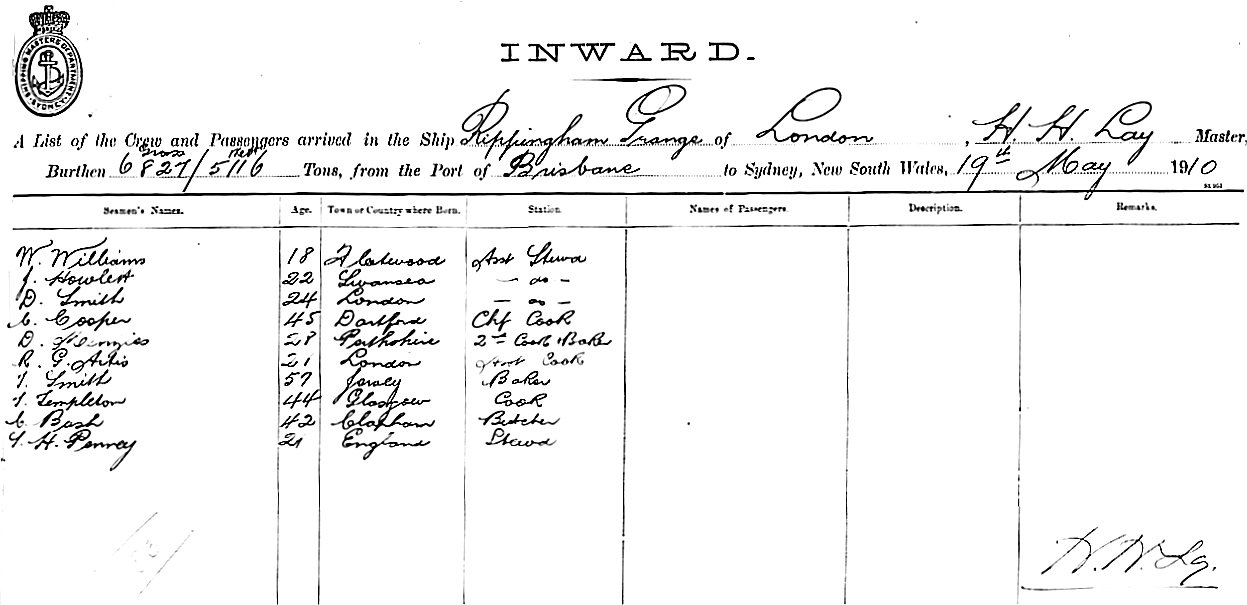 SHIPPING MASTERS DEPARTMENT SYDNEY
INWARD.
A List of the Crew and Passengers arrived in the Ship Rippingham Grange of London, H. H. Lay Master,
Gross Nett
Burthen 6827/5116 Tons, from the Port of Brisbane to Sydney, New South Wales, 19th May 1910
Seamen's Names. Age. Town or Country where Born. Station. Names of Passengers. Description. Remarks.
W. Williams 18 Fleetwood Asst Stewd
J. Howlett 22 Swansea — do —
D. Smith 24 London — do —
C. Cooper 45 Dartford Chf Cook
D. Menzies 28 Perthshire 2nd Cook & Baker
R. G. Artis 21 London Asst Cook
T. Smith 57 Jersey Baker
T. Templeton 44 Glasgow Cook
C. Bash 42 Clapham Butcher
H. Penney 21 England Stewd